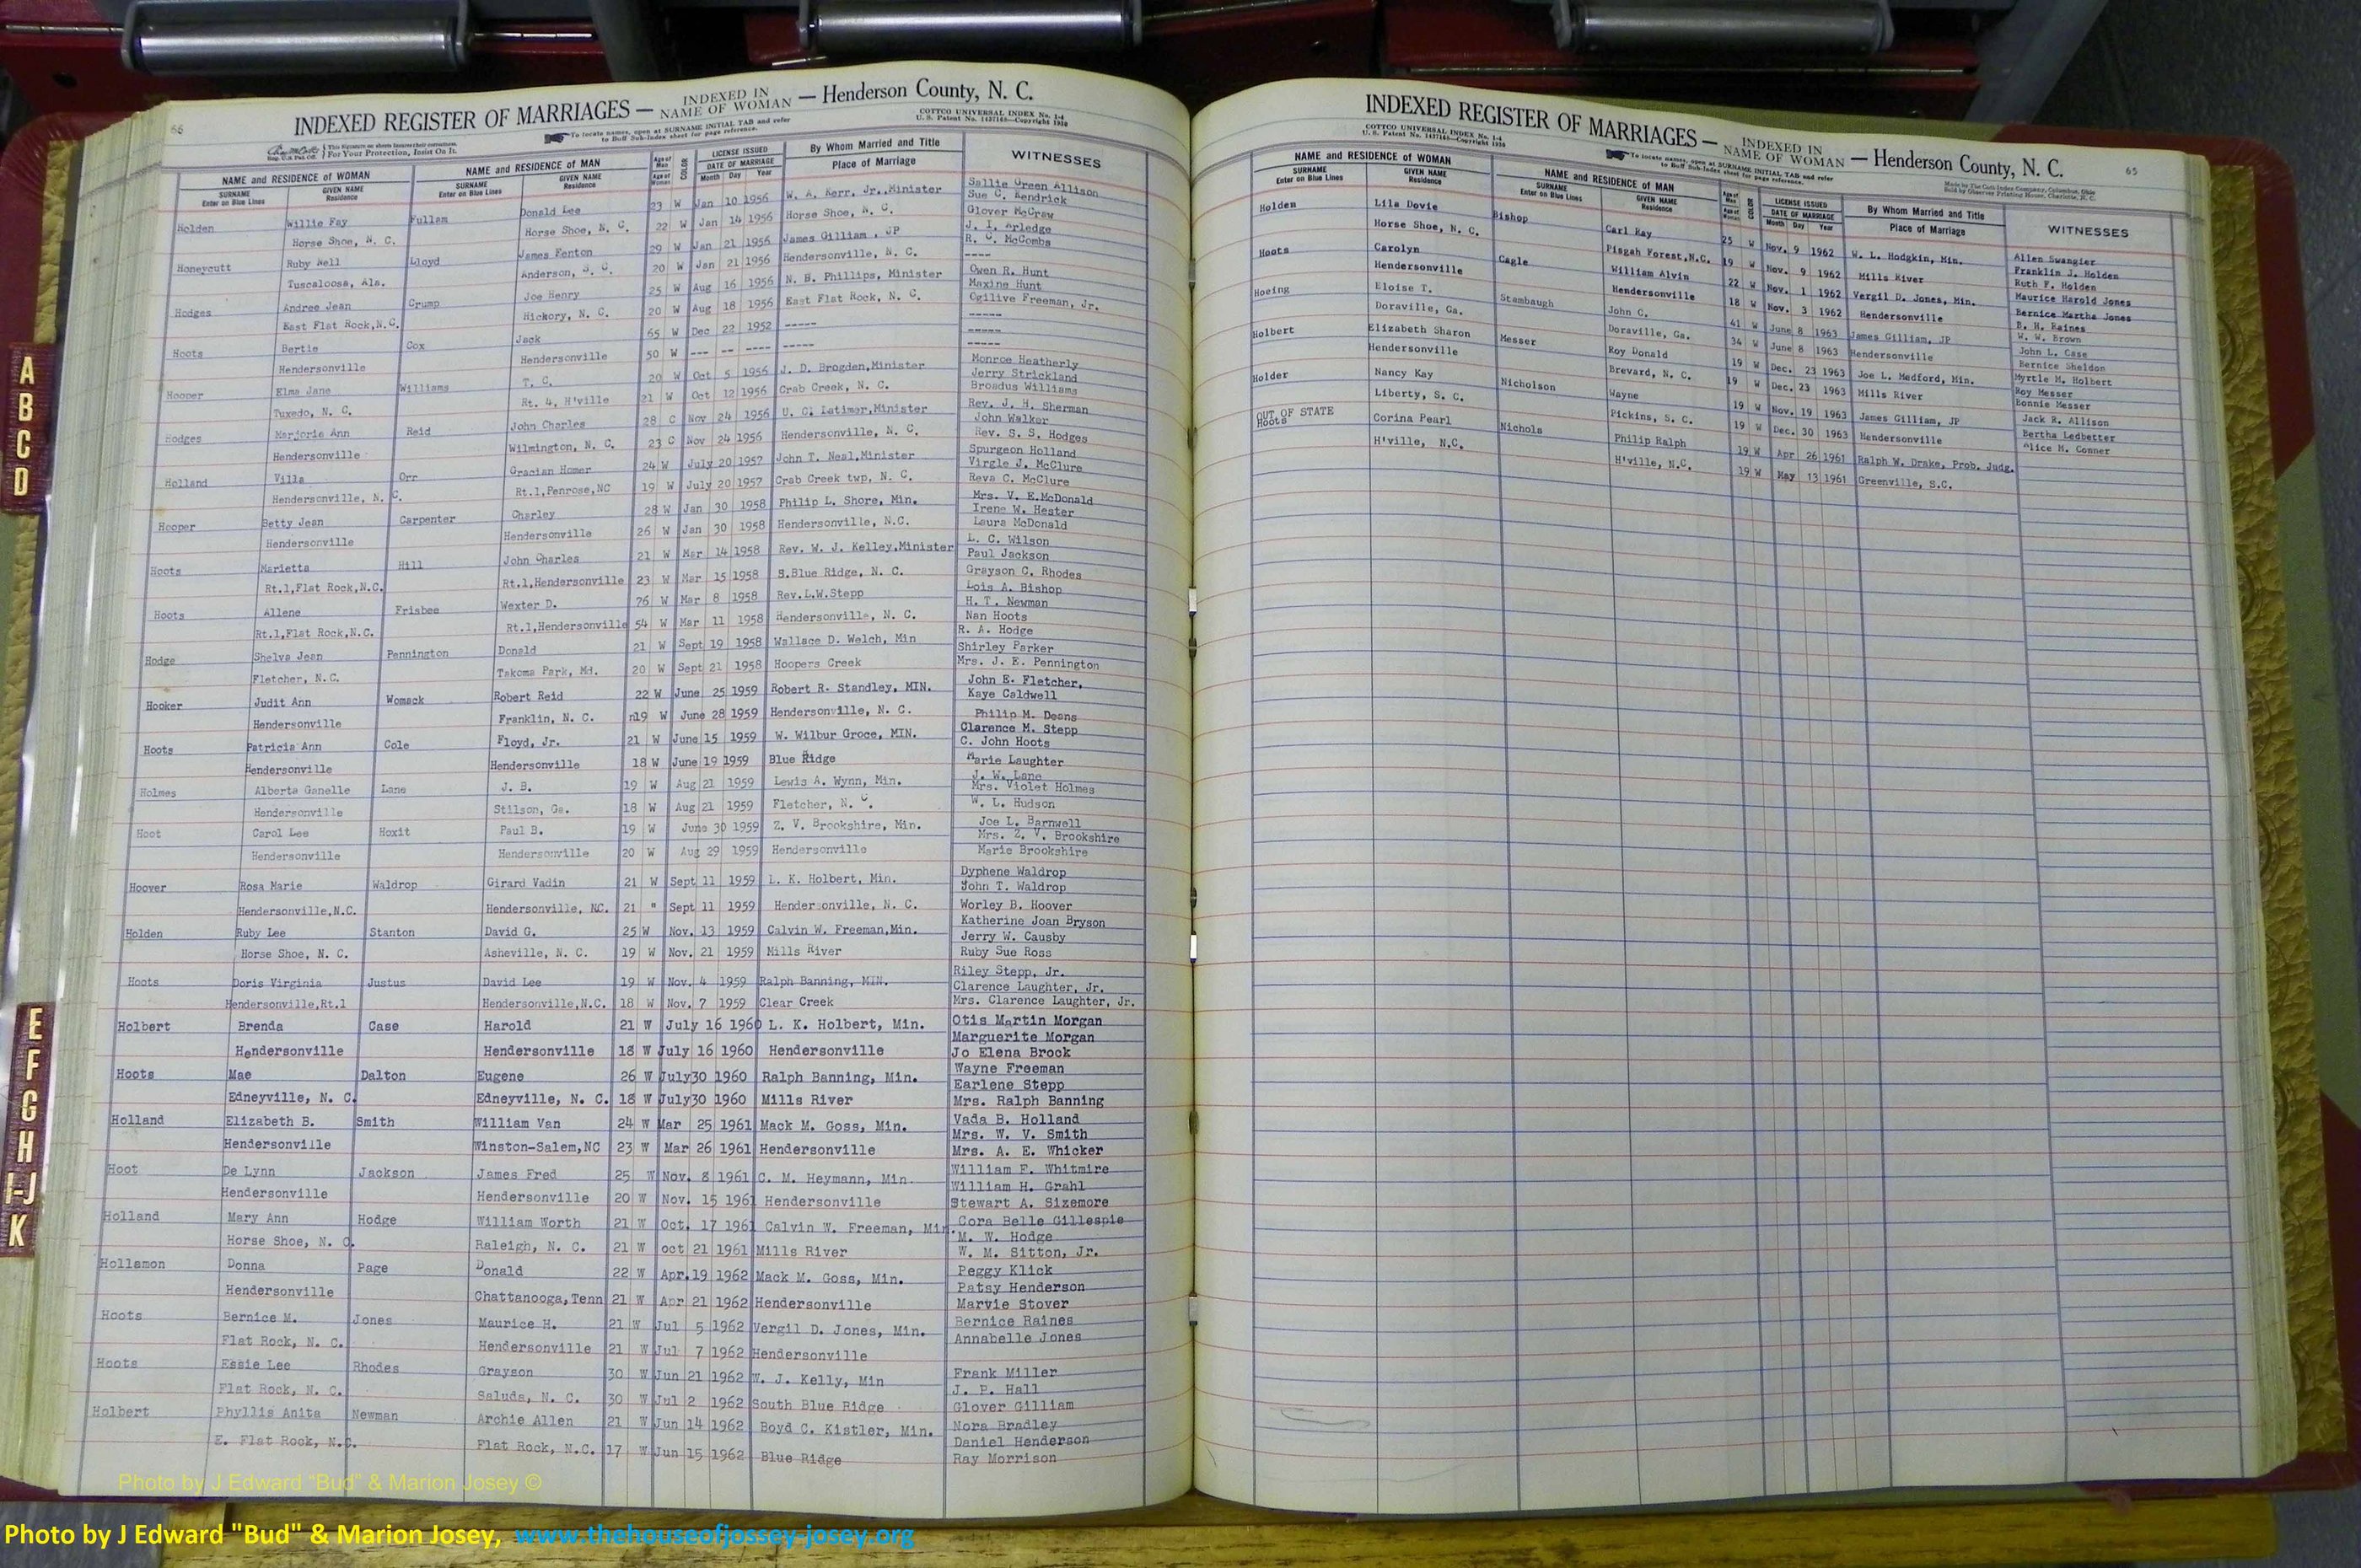 66
INDEXED REGISTER OF MARRIAGES — INDEXED IN NAME OF WOMAN — Henderson County, N. C.
To locate names, open at SURNAME INITIAL TAB and refer to Buff Sub-Index sheet for page reference.
COTTCO UNIVERSAL INDEX No. 1-4
For Your Protection, Insist On It.
NAME and RESIDENCE OF WOMAN NAME and RESIDENCE OF MAN Age of Man COLOR LICENSE ISSUED By Whom Married and Title WITNESSES
SURNAME GIVEN NAME SURNAME GIVEN NAME Age of Woman DATE OF MARRIAGE Place of Marriage
Enter on Blue Lines Residence Enter on Blue Lines Residence Month Day Year
Holden Willie Fay Fullam Donald Lee 23 W Jan 10 1956 W. A. Kerr, Jr.,Minister Sallie Green Allison
Sue C. Kendrick
Horse Shoe, N. C. Horse Shoe, N. C. 22 W Jan 14 1956 Horse Shoe, N. C. Glover McCraw
Honeycutt Ruby Nell Lloyd James Fenton 29 W Jan 21 1956 James Gilliam , JP J. I. Arledge
R. C. McCombs
Tuscaloosa, Ala. Anderson, S. C. 20 W Jan 21 1956 Hendersonville, N. C. ----
Hodges Andree Jean Crump Joe Henry 25 W Aug 16 1956 N. B. Phillips, Minister Owen R. Hunt
Maxine Hunt
East Flat Rock,N.C. Hickory, N. C. 20 W Aug 18 1956 East Flat Rock, N. C. Ogilive Freeman, Jr.
Hoots Bertie Cox Jack 65 W Dec 22 1952 ----- -----
-----
Hendersonville Hendersonville 50 W --- -- ---- ----- -----
Hooper Elma Jane Williams T. C. 20 W Oct 5 1956 J. D. Brogden,Minister Monroe Heatherly
Jerry Strickland
Tuxedo, N. C. Rt. 4, H'ville 21 W Oct 12 1956 Crab Creek, N. C. Broadus Williams
Hodges Marjorie Ann Reid John Charles 28 C Nov 24 1956 U. C. Latimer,Minister Rev. J. H. Sherman
John Walker
Hendersonville Wilmington, N. C. 23 C Nov 24 1956 Hendersonville, N. C. Rev. S. S. Hodges
Holland Villa Orr Gracian Homer 24 W July 20 1957 John T. Neal,Minister Spurgeon Holland
Virgle J. McClure
Hendersonville, N. C. Rt.1,Penrose,NC 19 W July 20 1957 Crab Creek twp, N. C. Reva C. McClure
Hooper Betty Jean Carpenter Charley 28 W Jan 30 1958 Philip L. Shore, Min. Mrs. V. E.McDonald
Irene W. Hester
Hendersonville Hendersonville 26 W Jan 30 1958 Hendersonville, N.C. Laura McDonald
Hoots Marietta Hill John Charles 21 W Mar 14 1958 Rev. W. J. Kelley,Minister L. C. Wilson
Paul Jackson
Rt.1,Flat Rock,N.C. Rt.1,Hendersonville 23 W Mar 15 1958 S.Blue Ridge, N. C. Grayson C. Rhodes
Hoots Allene Frisbee Wexter D. 76 W Mar 8 1958 Rev.L.W.Stepp Lois A. Bishop
H. T. Newman
Rt.1,Flat Rock,N.C. Rt.1,Hendersonville 54 W Mar 11 1958 Hendersonville, N. C. Nan Hoots
Hodge Shelva Jean Pennington Donald 21 W Sept 19 1958 Wallace D. Welch, Min R. A. Hodge
Shirley Parker
Fletcher, N.C. Takoma Park, Md. 20 W Sept 21 1958 Hoopers Creek Mrs. J. E. Pennington
Hooker Judit Ann Womack Robert Reid 22 W June 25 1959 Robert R. Standley, MIN. John E. Fletcher,
Kaye Caldwell
Hendersonville Franklin, N. C. n19 W June 28 1959 Hendersonville, N. C. Philip M. Deans
Hoots Patricia Ann Cole Floyd, Jr. 21 W June 15 1959 W. Wilbur Groce, MIN. Clarence M. Stepp
C. John Hoots
Hendersonville Hendersonville 18 W June 19 1959 Blue Ridge Marie Laughter
Holmes Alberta Ganelle Lane J. B. 19 W Aug 21 1959 Lewis A. Wynn, Min. J. W. Lane
Mrs. Violet Holmes
Hendersonville Stilson, Ga. 18 W Aug 21 1959 Fletcher, N. C. W. L. Hudson
Hoot Carol Lee Hoxit Paul B. 19 W June 30 1959 Z. V. Brookshire, Min. Joe L. Barnwell
Mrs. Z. V. Brookshire
Hendersonville Hendersonville 20 W Aug 29 1959 Hendersonville Marie Brookshire
Hoover Rosa Marie Waldrop Girard Vadin 21 W Sept 11 1959 L. K. Holbert, Min. Dyphene Waldrop
John T. Waldrop
Hendersonville,N.C. Hendersonville, NC. 21 " Sept 11 1959 Hendersonville, N. C. Worley B. Hoover
Holden Ruby Lee Stanton David G. 25 W Nov. 13 1959 Calvin W. Freeman,Min. Katherine Joan Bryson
Jerry W. Causby
Horse Shoe, N. C. Asheville, N. C. 19 W Nov. 21 1959 Mills River Ruby Sue Ross
Hoots Doris Virginia Justus David Lee 19 W Nov. 4 1959 Ralph Banning, MIN. Riley Stepp, Jr.
Clarence Laughter, Jr.
Hendersonville,Rt.1 Hendersonville,N.C. 18 W Nov. 7 1959 Clear Creek Mrs. Clarence Laughter, Jr.
Holbert Brenda Case Harold 21 W July 16 1960 L. K. Holbert, Min. Otis Martin Morgan
Marguerite Morgan
Hendersonville Hendersonville 18 W July 16 1960 Hendersonville Jo Elena Brock
Hoots Mae Dalton Eugene 26 W July30 1960 Ralph Banning, Min. Wayne Freeman
Earlene Stepp
Edneyville, N. C. Edneyville, N. C. 18 W July30 1960 Mills River Mrs. Ralph Banning
Holland Elizabeth B. Smith William Van 24 W Mar 25 1961 Mack M. Goss, Min. Vada B. Holland
Mrs. W. V. Smith
Hendersonville Winston-Salem,NC 23 W Mar 26 1961 Hendersonville Mrs. A. E. Whicker
Hoot De Lynn Jackson James Fred 25 W Nov. 8 1961 C. M. Heymann, Min. William F. Whitmire
William H. Grahl
Hendersonville Hendersonville 20 W Nov. 15 1961 Hendersonville Stewart A. Sizemore
Holland Mary Ann Hodge William Worth 21 W Oct. 17 1961 Calvin W. Freeman, Min. Cora Belle Gillespie
M. W. Hodge
Horse Shoe, N. C. Raleigh, N. C. 21 W oct 21 1961 Mills River W. M. Sitton, Jr.
Hollamon Donna Page Donald 22 W Apr.19 1962 Mack M. Goss, Min. Peggy Klick
Patsy Henderson
Hendersonville Chattanooga,Tenn 21 W Apr 21 1962 Hendersonville Marvie Stover
Hoots Bernice M. Jones Maurice H. 21 W Jul 5 1962 Vergil D. Jones, Min. Bernice Raines
Annabelle Jones
Flat Rock, N. C. Hendersonville 21 W Jul 7 1962 Hendersonville
Hoots Essie Lee Rhodes Grayson 30 W Jun 21 1962 W. J. Kelly, Min Frank Miller
J. P. Hall
Flat Rock, N. C. Saluda, N. C. 30 W Jul 2 1962 South Blue Ridge Glover Gilliam
Holbert Phyllis Anita Newman Archie Allen 21 W Jun 14 1962 Boyd C. Kistler, Min. Nora Bradley
Daniel Henderson
E. Flat Rock, N.C. Flat Rock, N.C. 17 W Jun 15 1962 Blue Ridge Ray Morrison
INDEXED REGISTER OF MARRIAGES — INDEXED IN NAME OF WOMAN — Henderson County, N. C.
65
COTTCO UNIVERSAL INDEX No. 1-4
To locate names, open at SURNAME INITIAL TAB and refer to Buff Sub-Index sheet for page reference.
NAME and RESIDENCE OF WOMAN NAME and RESIDENCE OF MAN Age of Man COLOR LICENSE ISSUED By Whom Married and Title WITNESSES
SURNAME GIVEN NAME SURNAME GIVEN NAME Age of Woman DATE OF MARRIAGE Place of Marriage
Enter on Blue Lines Residence Enter on Blue Lines Residence Month Day Year
Holden Lila Dovie Bishop Carl Ray 25 W Nov. 9 1962 W. L. Hodgkin, Min. Allen Swangier
Franklin J. Holden
Horse Shoe, N. C. Pisgah Forest,N.C. 19 W Nov. 9 1962 Mills River Ruth F. Holden
Hoots Carolyn Cagle William Alvin 22 W Nov. 1 1962 Vergil D. Jones, Min. Maurice Harold Jones
Bernice Martha Jones
Hendersonville Hendersonville 18 W Nov. 3 1962 Hendersonville B. H. Raines
Hoeing Eloise T. Stambaugh John C. 41 W June 8 1963 James Gilliam, JP W. W. Brown
John L. Case
Doraville, Ga. Doraville, Ga. 34 W June 8 1963 Hendersonville Bernice Sheldon
Holbert Elizabeth Sharon Messer Roy Donald 19 W Dec. 23 1963 Joe L. Medford, Min. Myrtle M. Holbert
Roy Messer
Hendersonville Brevard, N. C. 19 W Dec. 23 1963 Mills River Bonnie Messer
Holder Nancy Kay Nicholson Wayne 19 W Nov. 19 1963 James Gilliam, JP Jack R. Allison
Bertha Ledbetter
Liberty, S. C. Pickins, S. C. 19 W Dec. 30 1963 Hendersonville Alice M. Conner
OUT OF STATE
Hoots Corina Pearl Nichols Philip Ralph 19 W Apr 26 1961 Ralph W. Drake, Prob. Judg.
H'ville, N.C. H'ville, N.C. 19 W May 13 1961 Greenville, S.C.
A
B
C
D
E
F
G
H
I-J
K
Photo by J Edward "Bud" & Marion Josey ©
Photo by J Edward "Bud" & Marion Josey, www.thehouseofjossey-josey.org